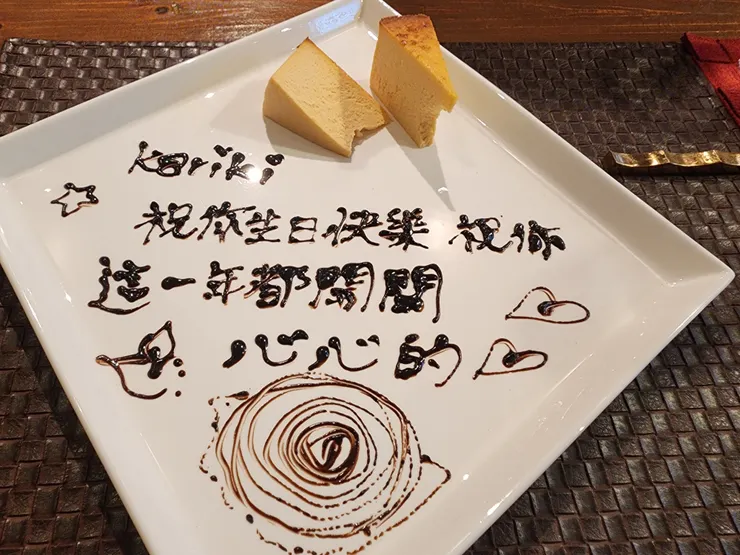 Kariki
祝你生日快樂 祝你
這一年都開開
心心的